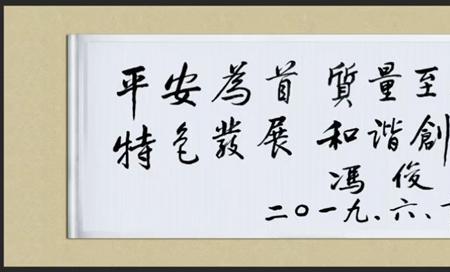 平安為首 質量至
特色發展 和谐創
馮俊
二〇一九、六、